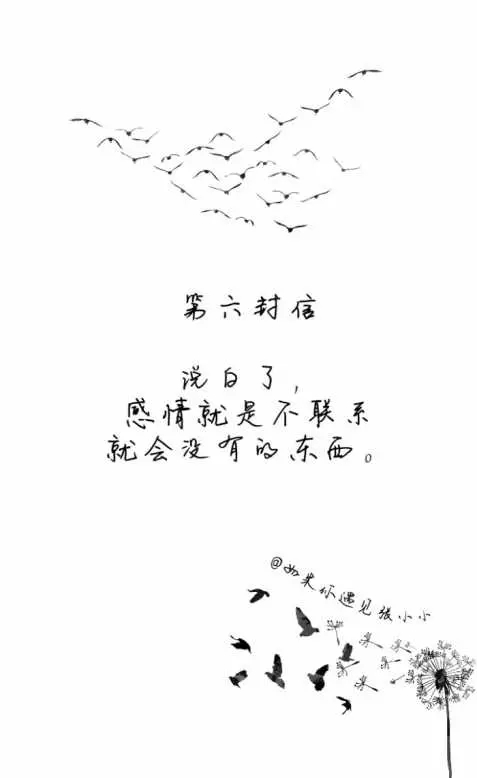 第六封信
说白了，
感情就是不联系
就会没有的东西。
@如果你遇见张小小